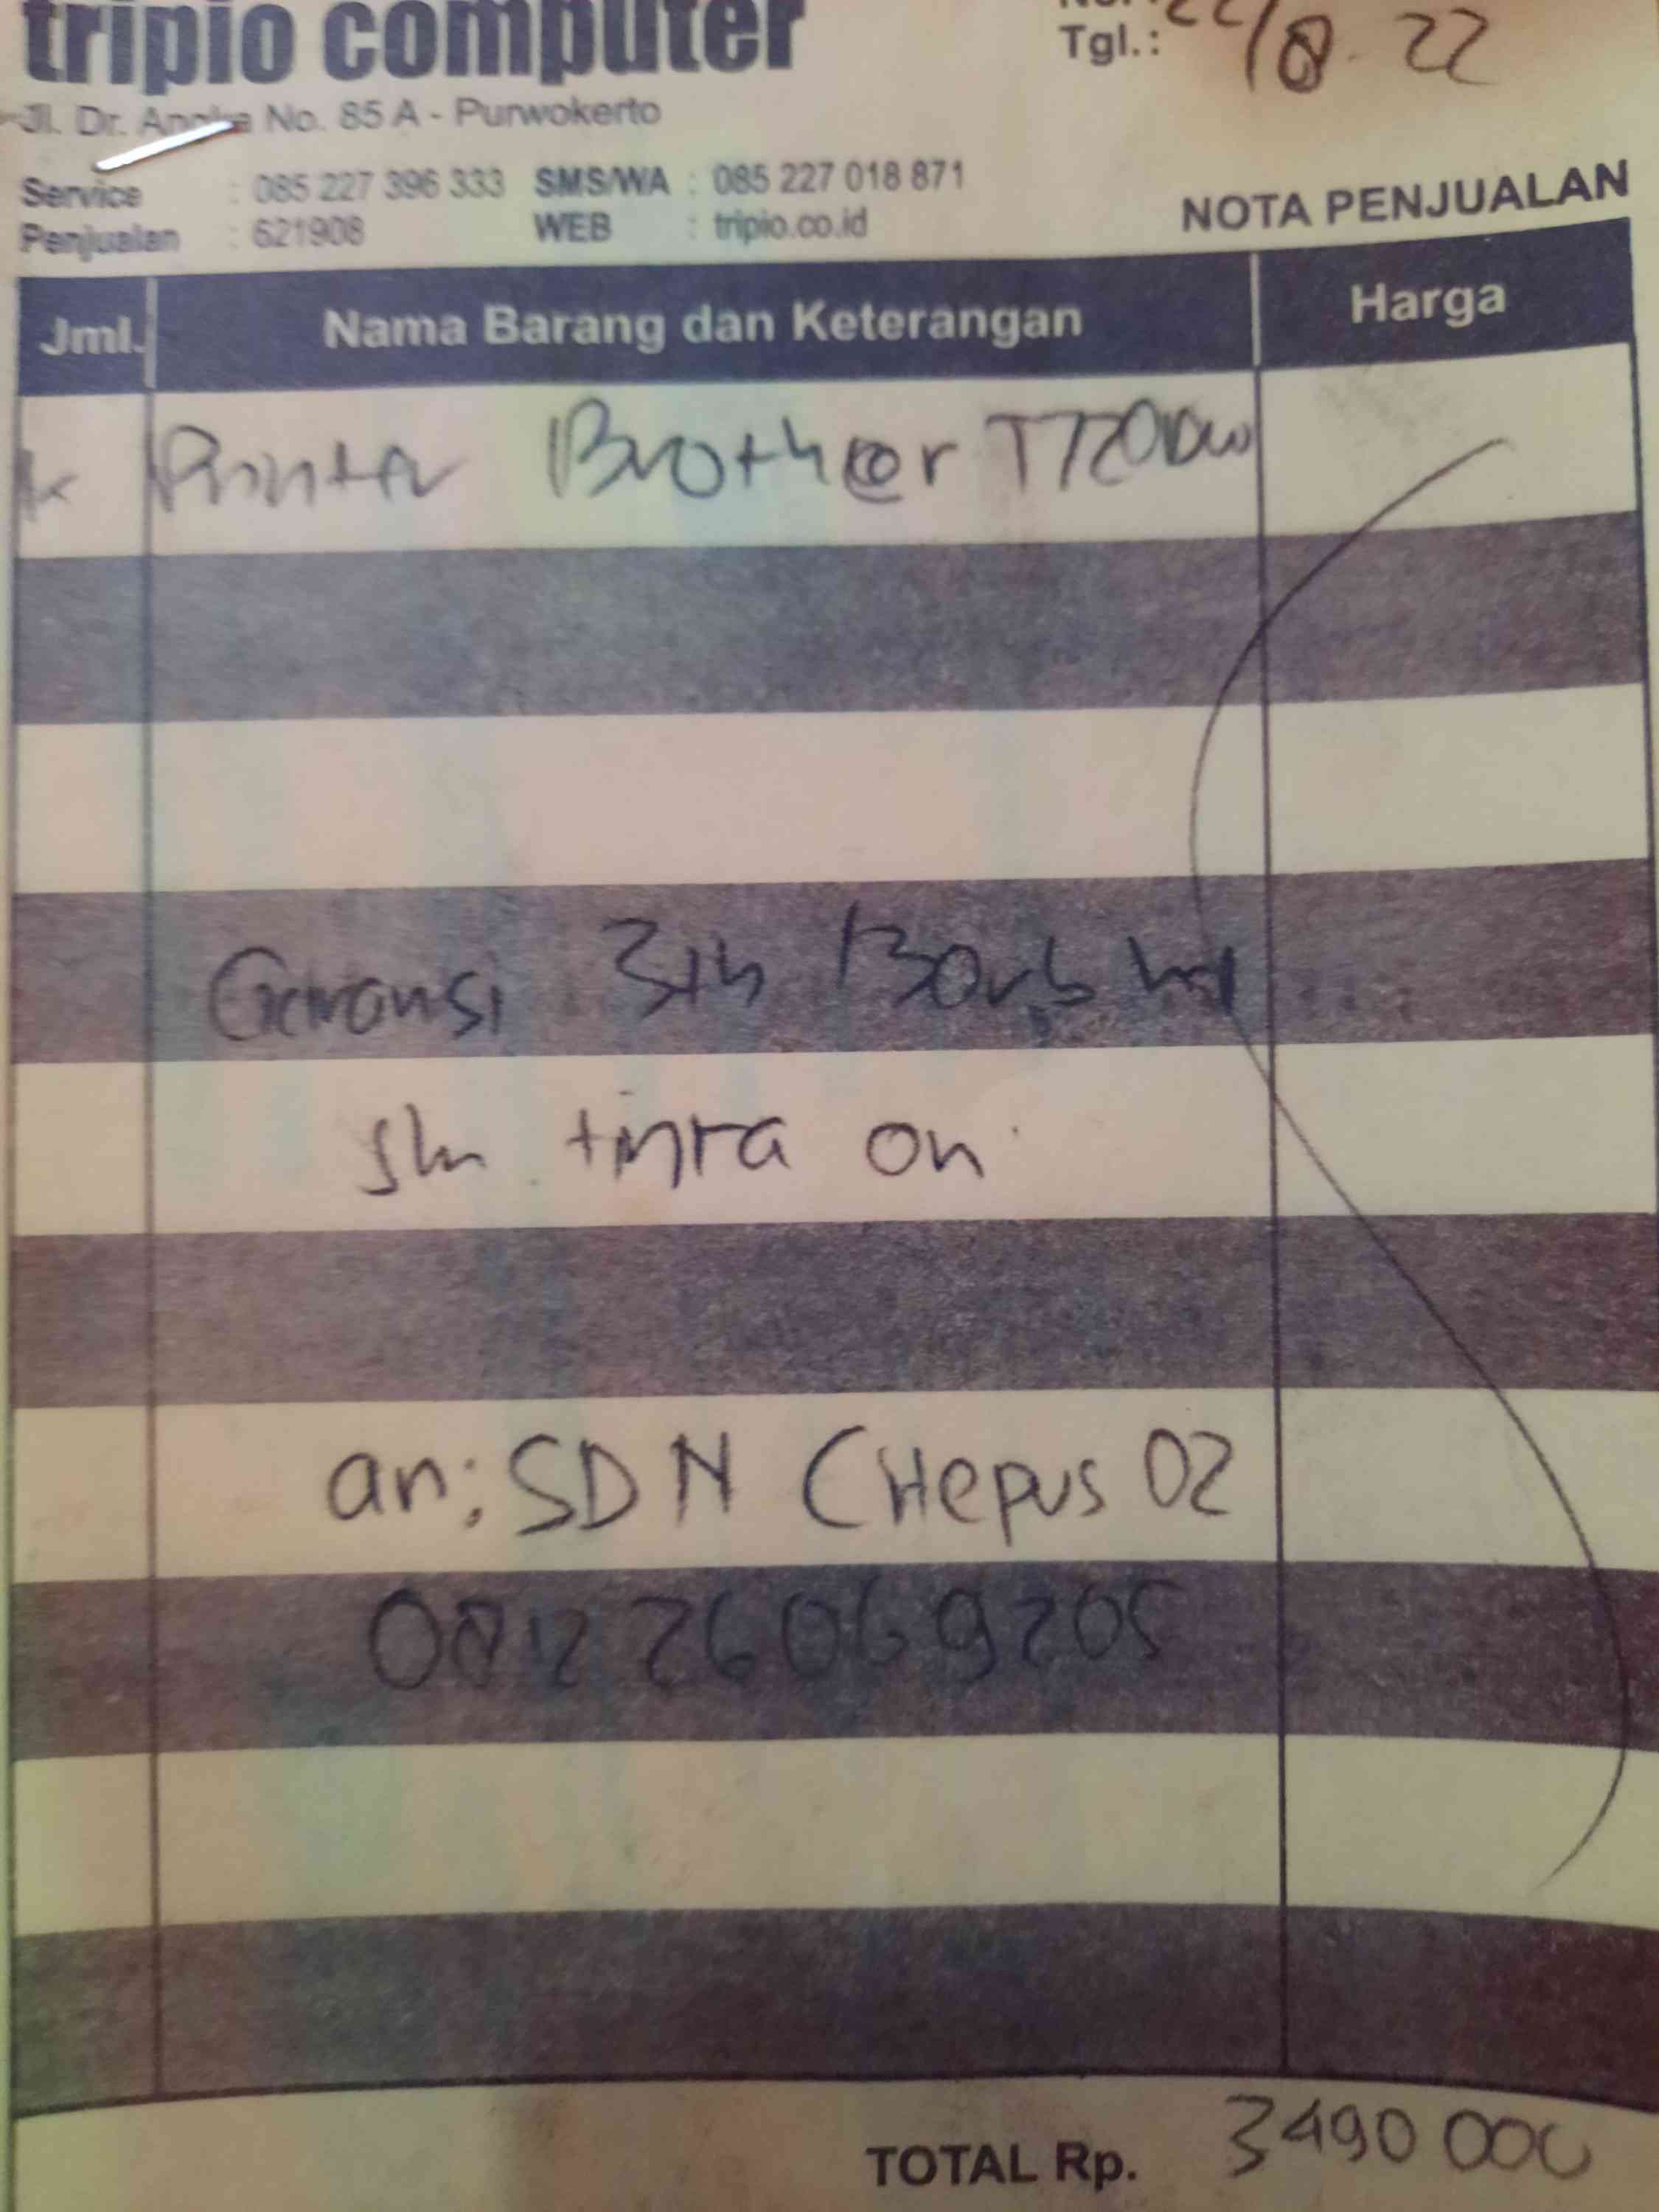 tripio computer
Tgl.: 22/8.22
Jl. Dr. Angka No. 85 A - Purwokerto
Service : 085 227 396 333 SMS/WA : 085 227 018 871
Penjualan : 621908 WEB : tripio.co.id
NOTA PENJUALAN
Jml. Nama Barang dan Keterangan Harga
Printer Brother T720DW
Garansi 3th
tinta on
an: SDN CIHepus 02
081226069205
TOTAL Rp. 3490 000